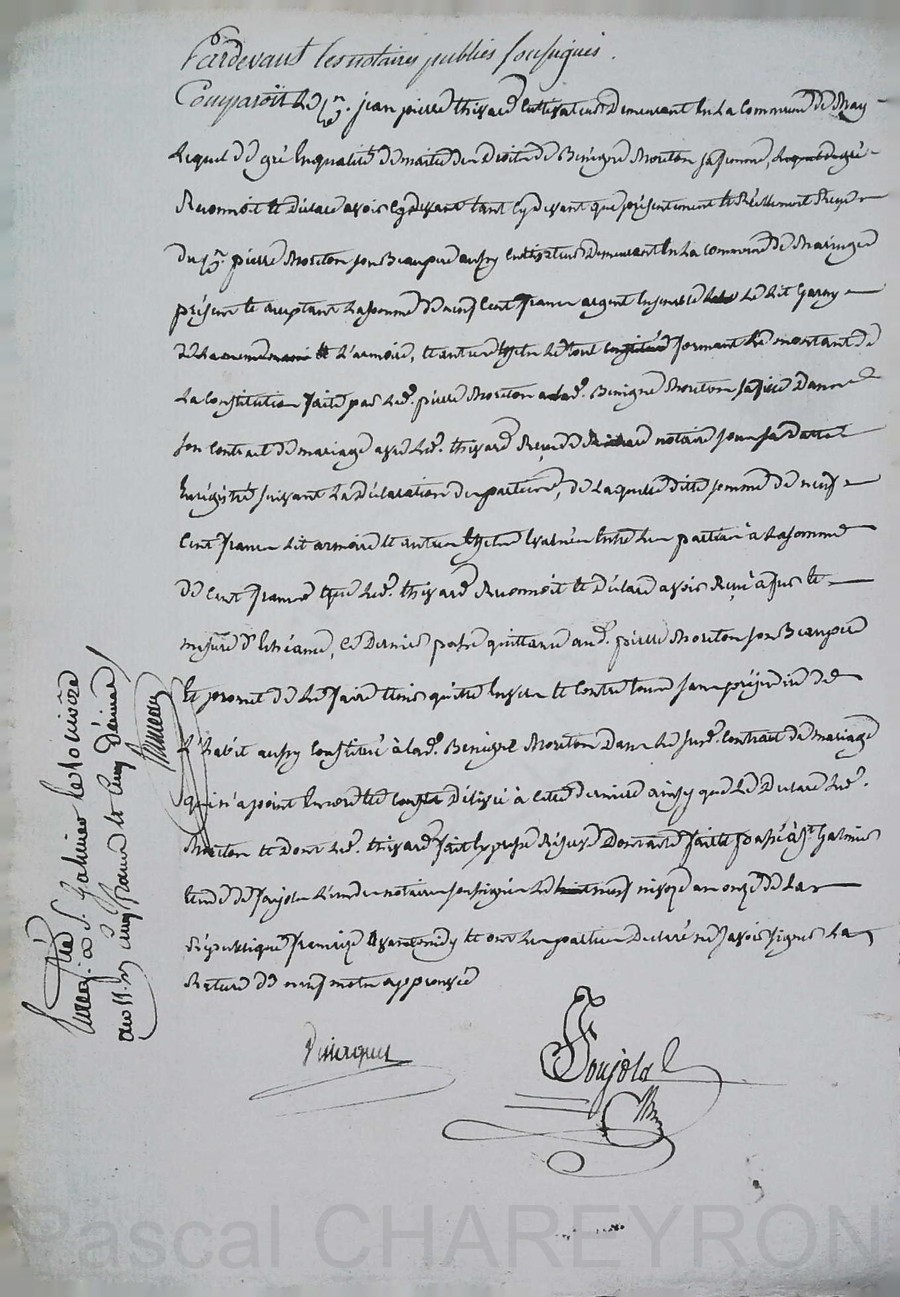 Pardevant les notaires publics soussignés.
Comparoit le Cn. jean pierre thivard cultivateur demeurant en la Commune de
Lequel de gré en qualité de maitre des Droits de Benigne Moreton sa femme,
Reconnoit et déclare avoir cydevant tant cydevant que présentement et Réellement Reçu
du Cn. pierre Moreton son Beaupere aussy cultivateur demeurant en la commune de Maringes
présent et acceptant la somme de neuf Cent francs argent Ensemble le Lit Garny
L'armoire, et autres effets le tout formant le montant de
La Constitution faite par led. pierre Moreton a lad. Benigne Moreton sa fille Dans
son Contrat de mariage avec led. thivard Reçu notaire sous sa datte
Enrégistré suivant la déclaration des parties, de laquelle ditte somme de neuf
Cent francs Lit armoire et autres effets Evalués Entre les parties à la somme
de Cent francs que led. thivard Reconnoit et déclare avoir Reçu
ce Dernier passe quittance aud. pierre Moreton son Beaupere
Et promet de le faire tenir quitte Envers et Contre tous sans préjudice de
L'habit aussy Constitué à lad. Benigne Moreton Dans le susd. Contrat de mariage
qui n'a point Encore été délivré à cette derniere ainsy que le déclare led.
Moreton et dont led. thivard fait Expresse Réserve Dont acte fait et passé à St. Galmier
Etude de Soujola L'un des notaires soussignés le neuf nivose an onze de la
République française avant midy et ont les parties Déclaré ne savoir signer
Rature de neuf mots approuvée
Soujola
Enregistré à St. Galmier le 10 nivôse
an 11. Rçu cinq francs cinq décimes